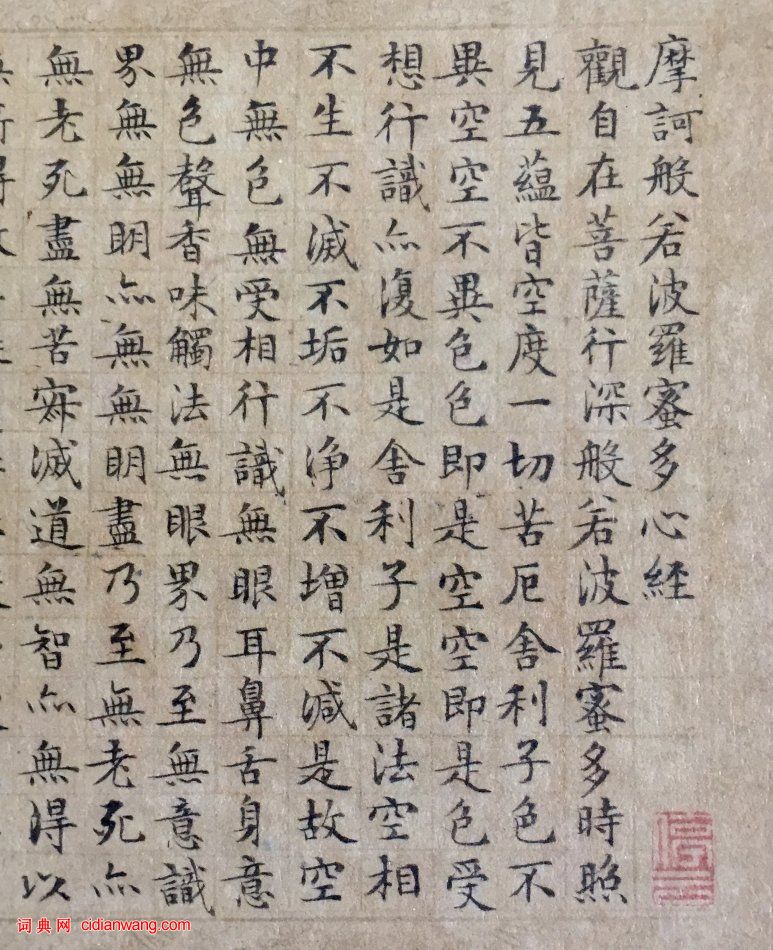 摩訶般若波羅蜜多心経
觀自在菩薩行深般若波羅蜜多時照
見五蘊皆空度一切苦厄舍利子色不
異空空不異色色即是空空即是色受
想行識亦復如是舍利子是諸法空相
不生不滅不垢不淨不增不減是故空
中無色無受相行識無眼耳鼻舌身意
無色聲香味觸法無眼界乃至無意識
界無無明亦無無明盡乃至無老死亦
無老死盡無苦寂滅道無智亦無得以
词典网 cidianwang.com